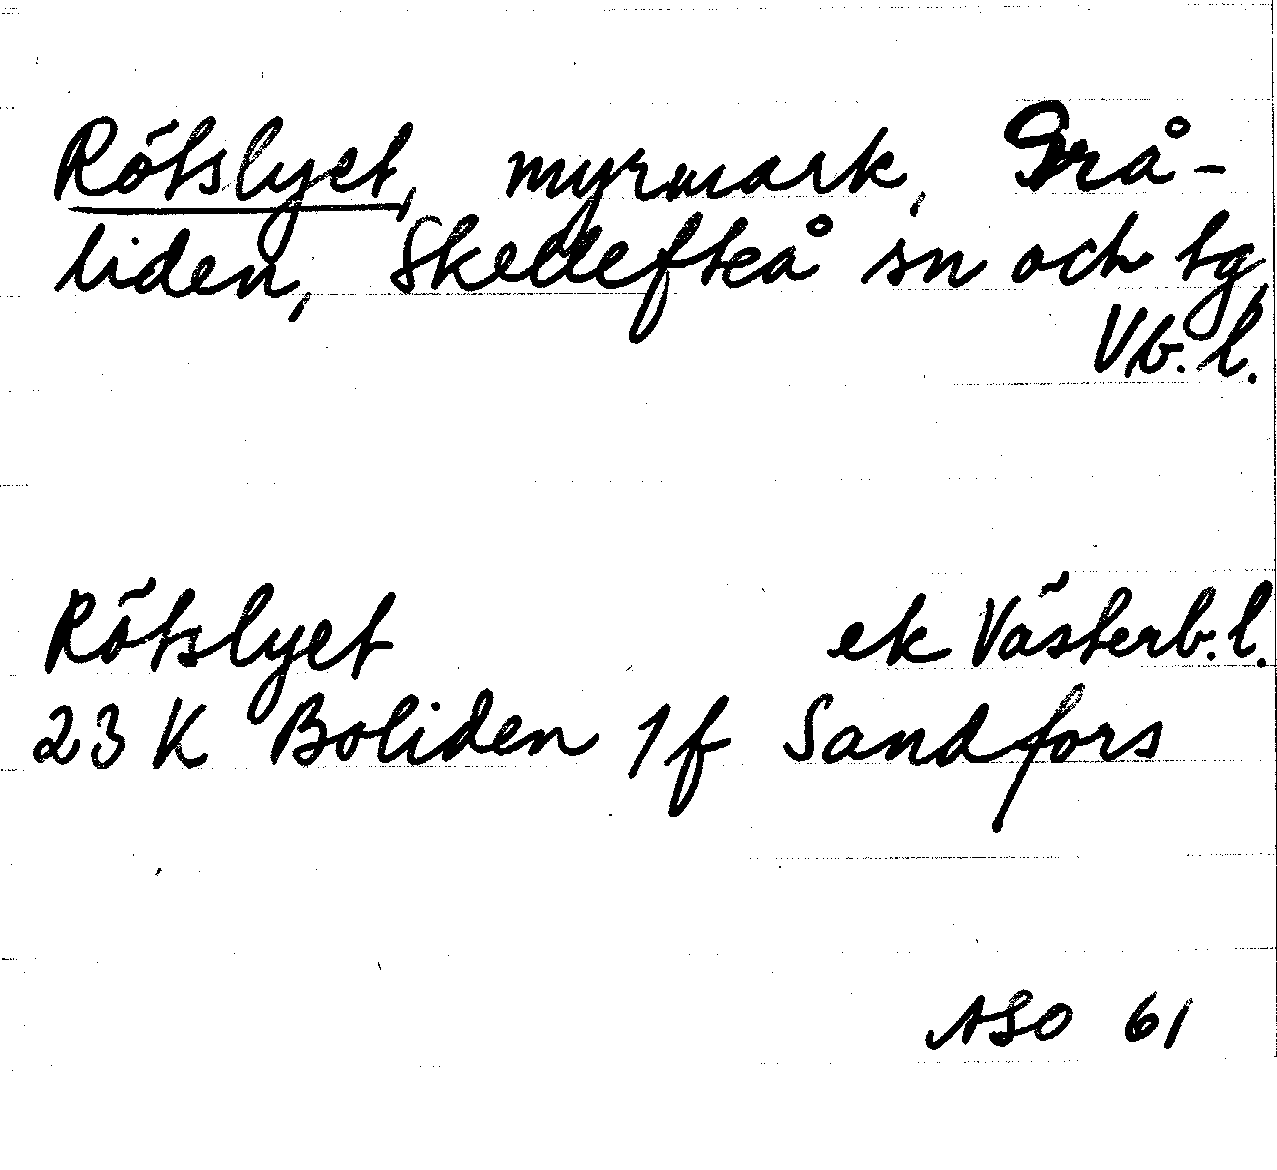 Rötslyet, myrmark, Grå-
liden, Skellefteå sn och tg,
Vb. l.
Rötslyet ek Västerb. l.
23 K Boliden 1 f Sandfors
ASO 61